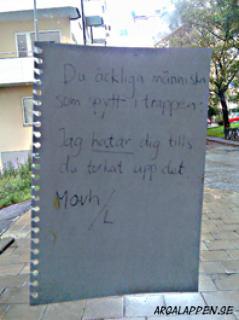 Du äckliga människa
som spytt i trappen:
Jag hatar dig tills
du torkat upp det.
Movh
/L
ARGALAPPEN.SE